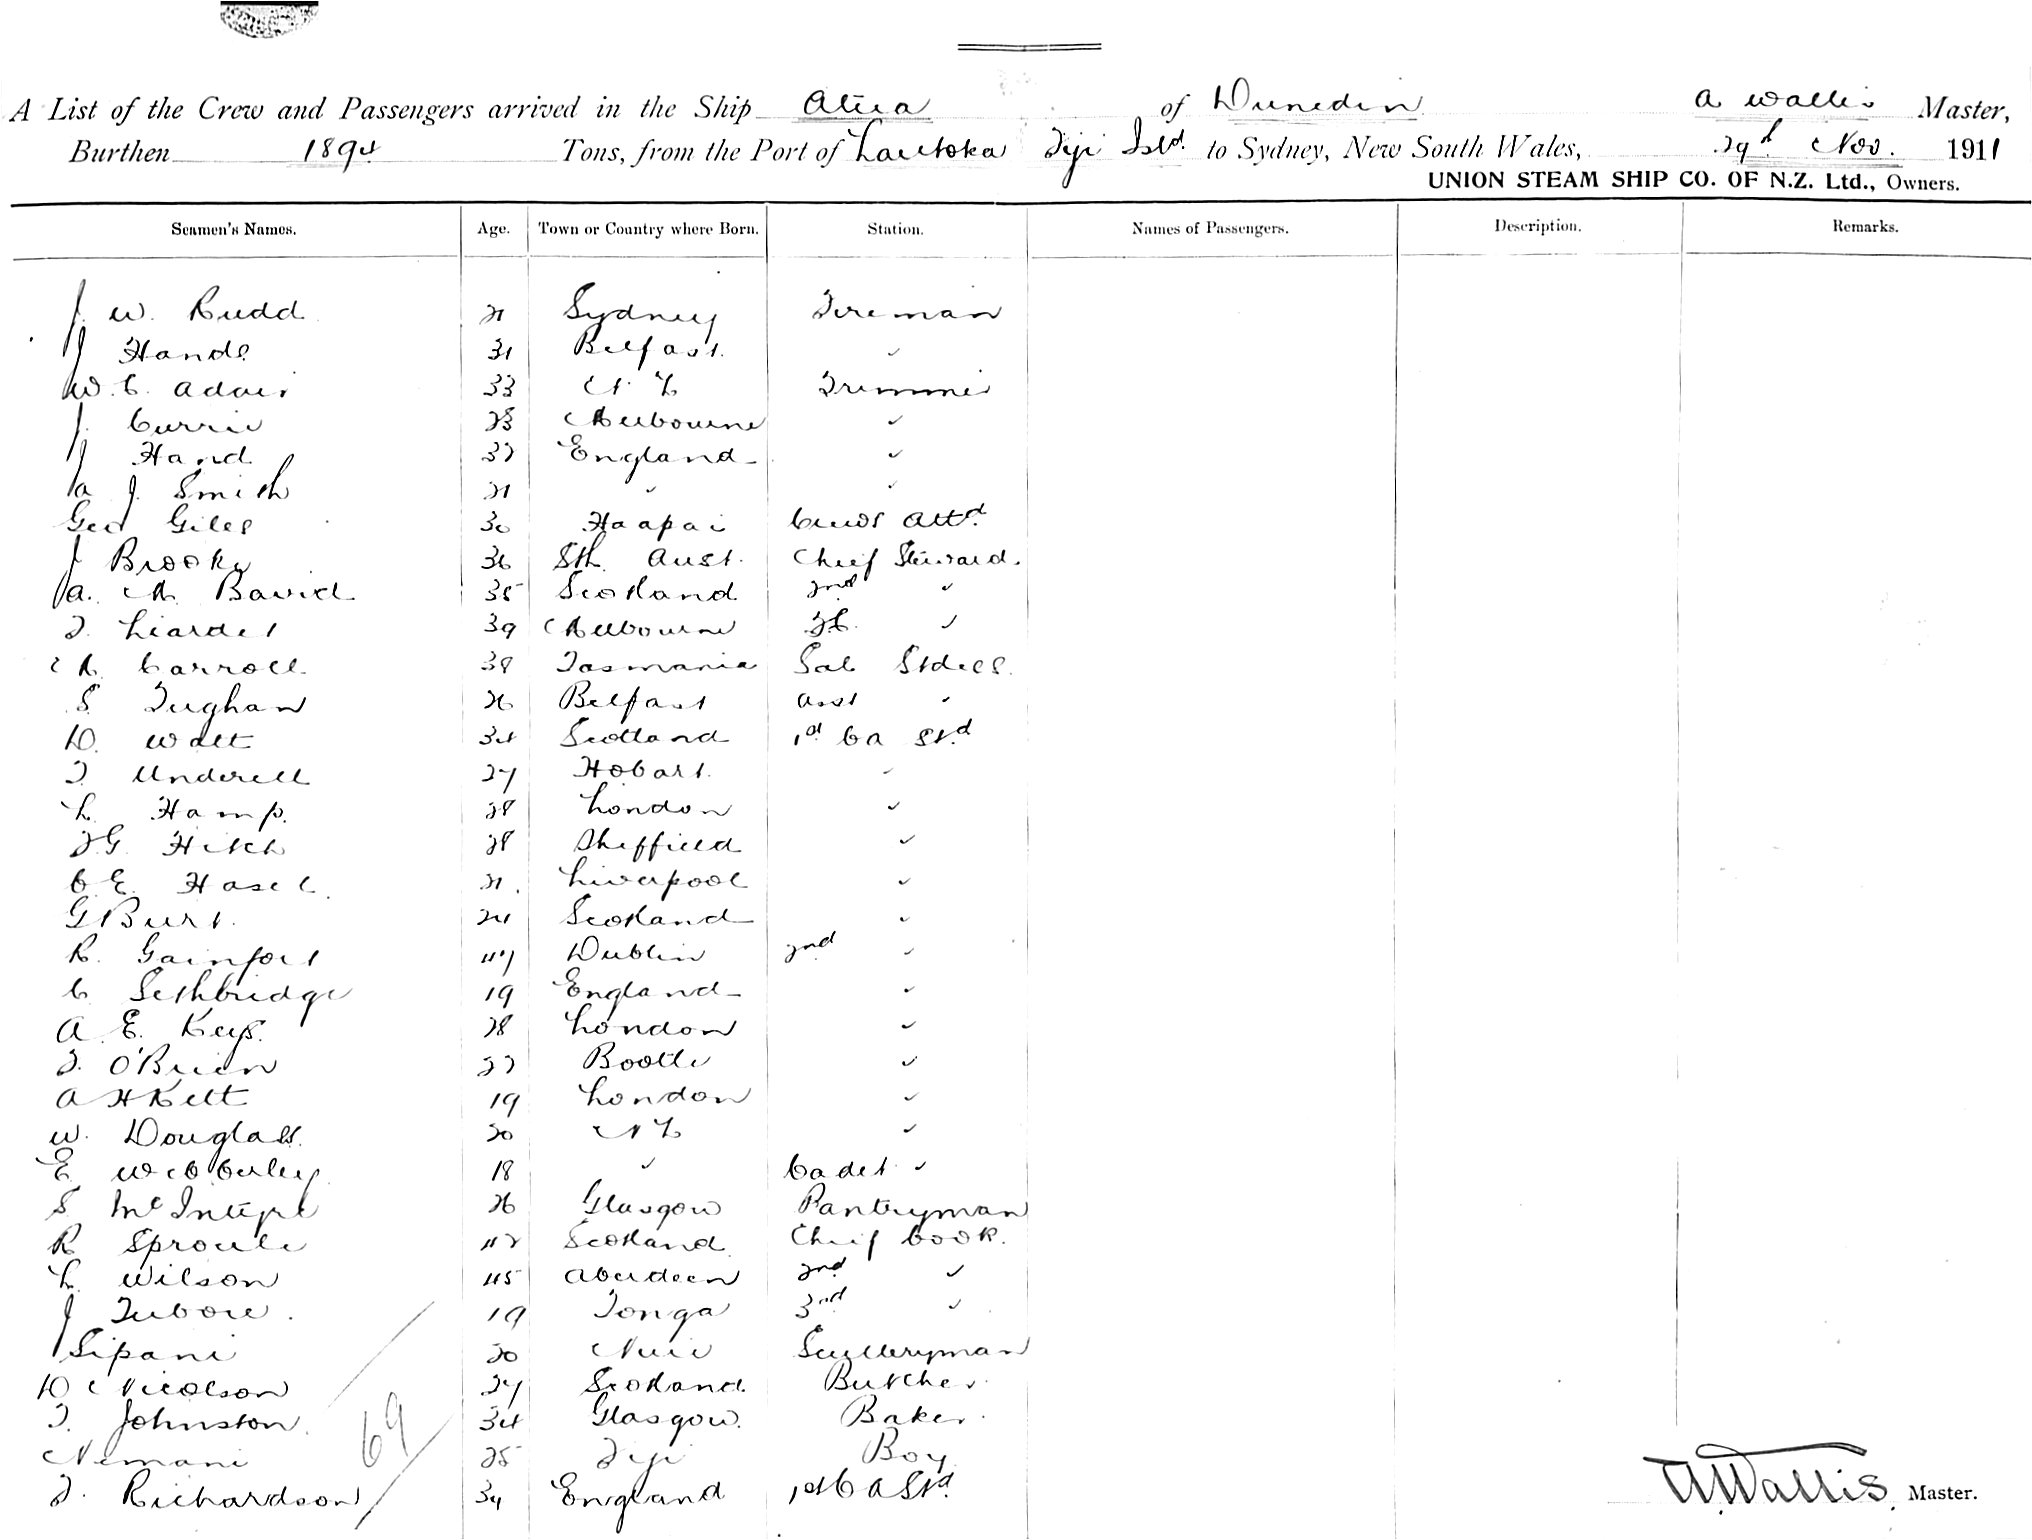 A List of the Crew and Passengers arrived in the Ship Atua of Dunedin A Wallis Master,
Burthen 1894 Tons, from the Port of Lautoka Fiji Isld. to Sydney, New South Wales, 29th Nov. 1911
UNION STEAM SHIP CO. OF N.Z. Ltd., Owners.
Seamen's Names. Age. Town or Country where Born. Station. Names of Passengers. Description. Remarks.
J. W. Rudd 21 Sydney Fireman
J Hands 31 Belfast. "
W. C. Adair 33 N Z Trimmer
J. Currie 23 Melbourne "
J Hand 37 England "
A J. Smith 21 " "
Geo Giles 30 Haapai Crews Attd.
J Brooks 36 Sth. Aust. Chief Steward.
A. M. Bavid 35 Scotland 2nd "
F. Liardet 39 Melbourne F.C. "
M. Carroll 38 Tasmania Sal Stdess.
S. Tughan 26 Belfast Asst "
D. Watt 34 Scotland 1st Ca Std
F Underell 27 Hobart. "
L. Hamp. 28 London "
F G. Hitch 28 Sheffield "
C. E. Hasel. 21. Liverpool "
G Burt. 24 Scotland "
R. Gainfort 47 Dublin 2nd "
C Sethbridge 19 England "
A. E. Keys. 28 London "
F. O'Brien 27 Bootle "
A H Kett 19 London "
W. Douglass. 20 N Z "
E. Webberley 18 " Cadet "
S McIntyre 26 Glasgow Pantryman
R Sproule 42 Scotland. Chief Cook.
L Wilson 45 Aberdeen 2nd "
J Tubore. 19 Tonga 3rd "
Sipani 20 Niue Sculleryman
D Nicolson 27 Scotland. Butcher.
F. Johnston. 34 Glasgow. Baker.
Nemani 25 Fiji Boy
F. Richardson 34 England 1st C A Std.
69
A Wallis. Master.